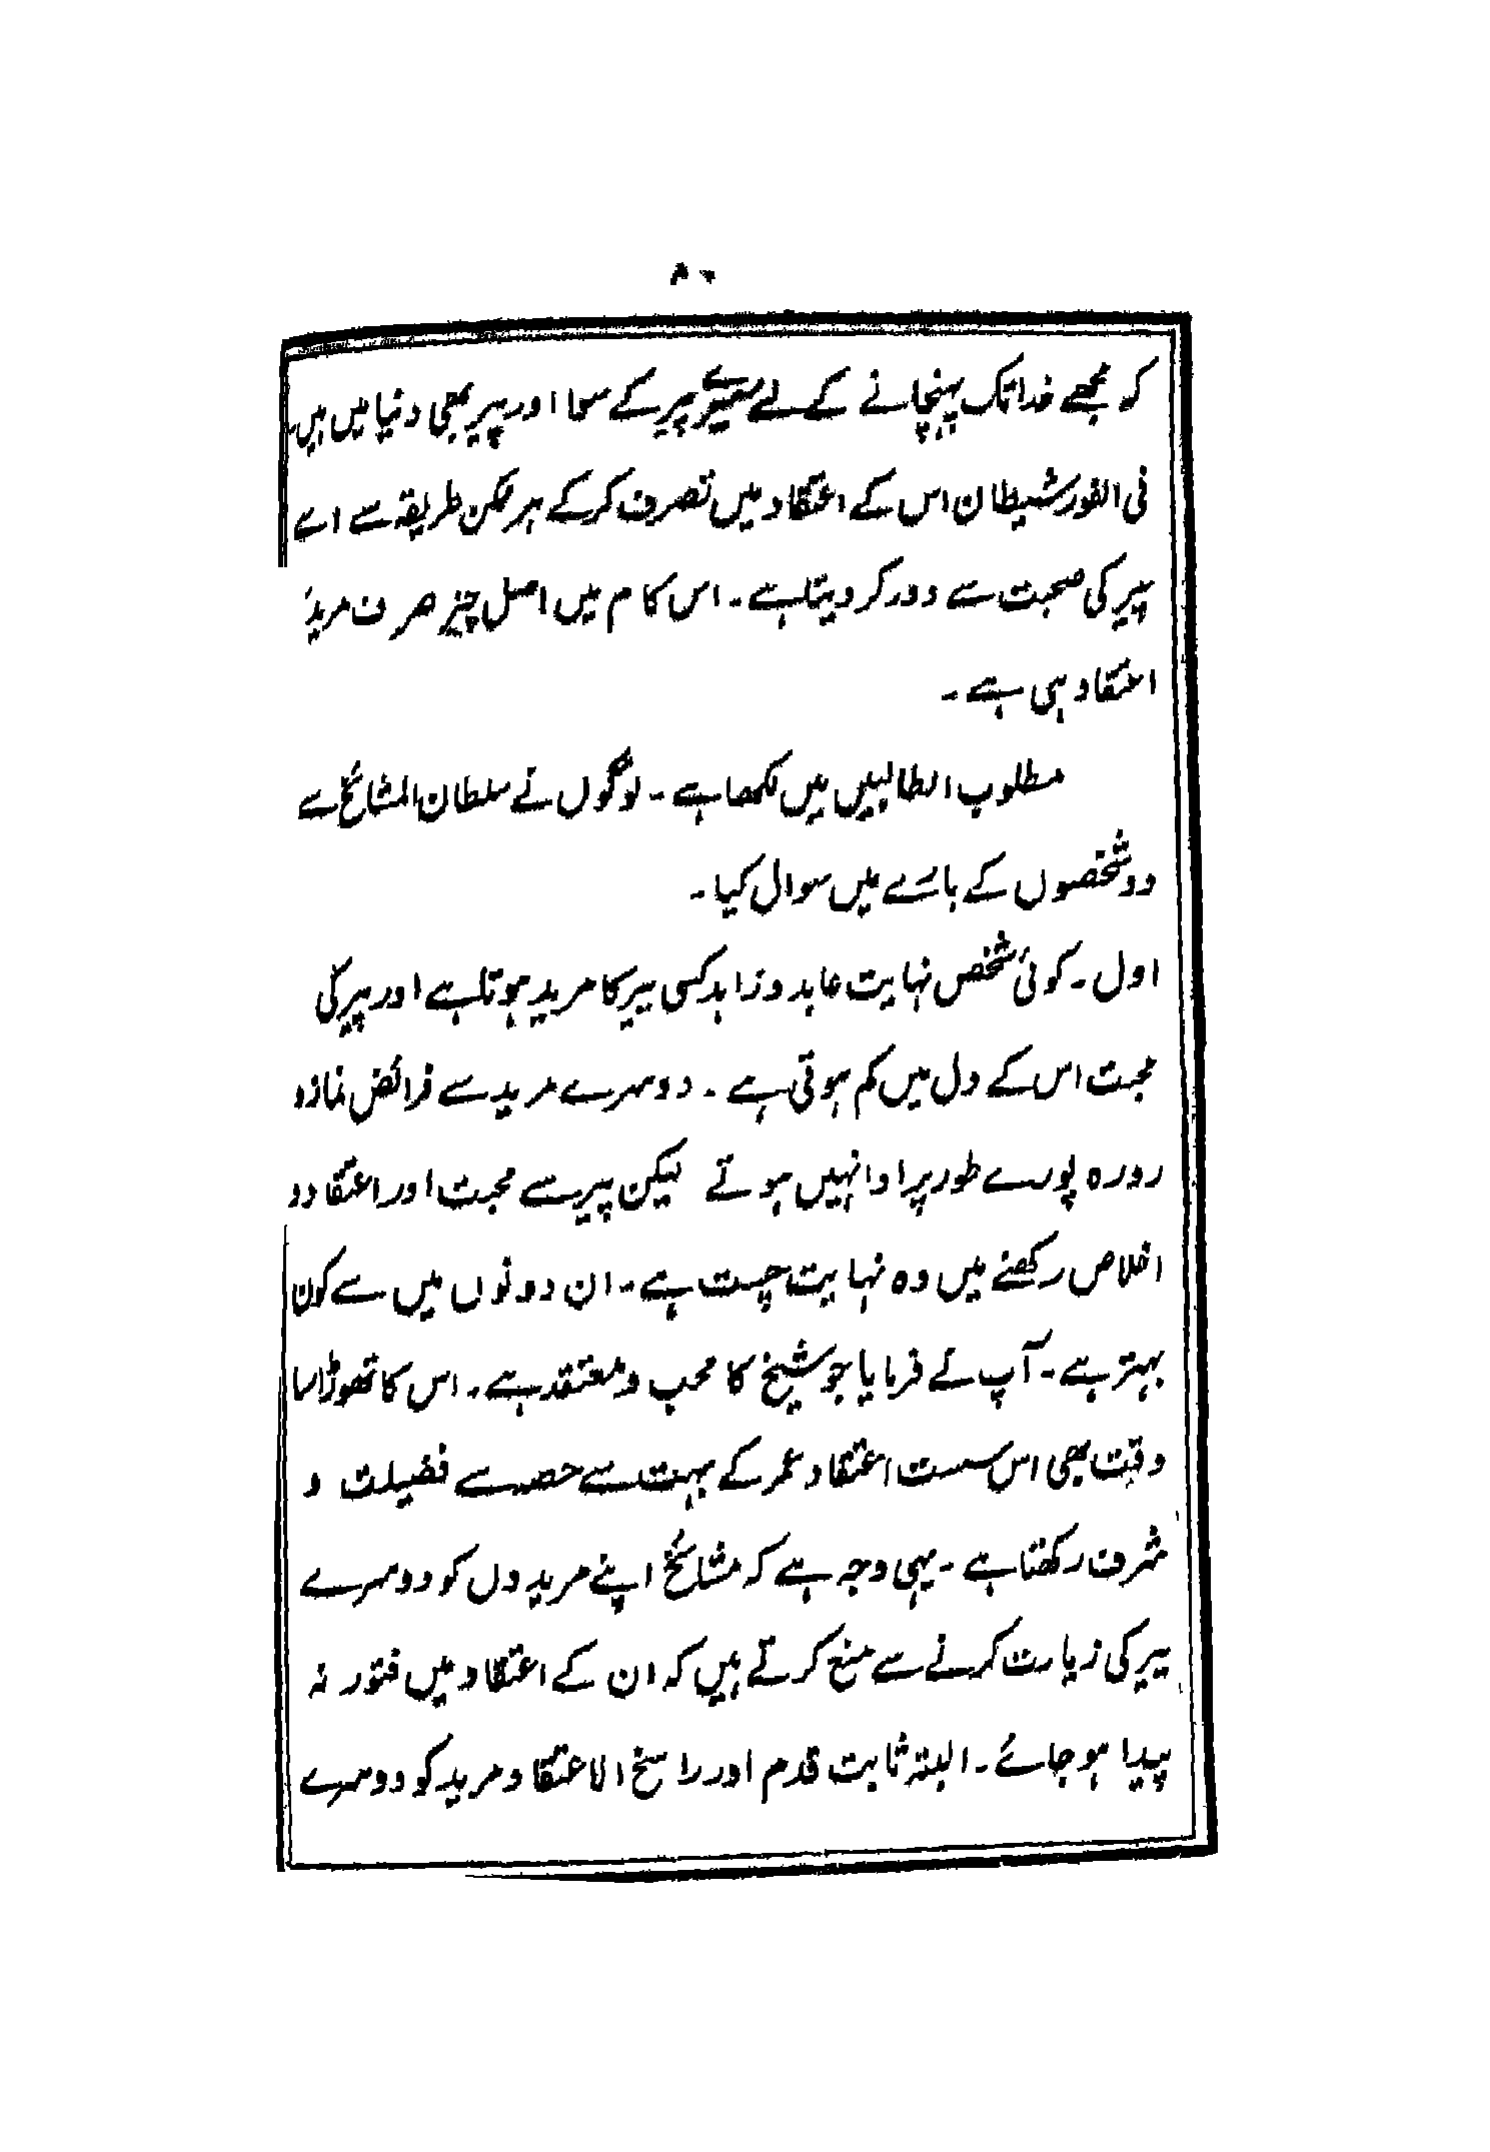 ۸۰
کہ مجھے خدا تک پہنچانے کے لئے میرے پیر کے سوا اور پیر بھی دنیا میں ہیں
فی الفور شیطان اس کے اعتقاد میں تصرف کر کے ہر ممکن طریقہ سے اسے
پیر کی صحبت سے دور کر دیتا ہے ۔ اس کام میں اصل چیز صرف مرید
اعتقاد ہی ہے ۔
مطلوب الطالبین میں لکھا ہے ۔ لوگوں نے سلطان المشائخ سے
دو شخصوں کے بارے میں سوال کیا ۔
اول ۔ کوئی شخص نہایت عابد و زاہد کسی پیر کا مرید ہوتا ہے اور پیر کی
محبت اس کے دل میں کم ہوتی ہے ۔ دوسرے مرید سے فرائض نماز و
روزہ پورے طور پر ادا نہیں ہوتے لیکن پیر سے محبت اور اعتقاد و
اخلاص رکھنے میں وہ نہایت چست ہے ۔ ان دونوں میں سے کون
بہتر ہے ۔ آپ نے فرمایا جو شیخ کا محب و معتقد ہے ۔ اس کا تھوڑا سا
وقت بھی اس سست اعتقاد عمر کے بہت سے حصہ سے فضیلت و
شرف رکھتا ہے ۔ یہی وجہ ہے کہ مشائخ اپنے مرید دل کو دوسرے
پیر کی زیارت کرنے سے منع کرتے ہیں کہ ان کے اعتقاد میں فتور نہ
پیدا ہو جائے ۔ البتہ ثابت قدم اور راسخ الاعتقاد مرید کو دوسرے